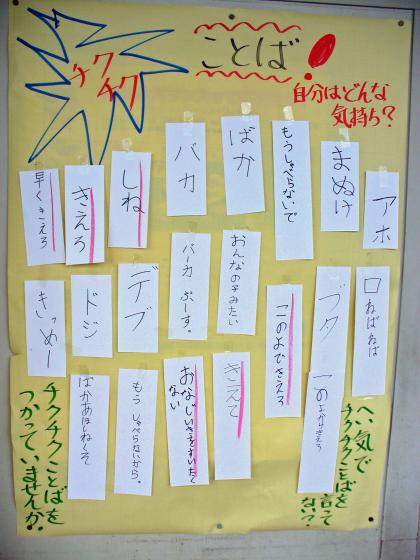 チクチク
ことば!
自分はどんな
気持ち?
アホ
まぬけ
もうしゃべらないで
ばか
バカ
しね
きえろ
早くきえろ
口ねばねば
ブタ
このよできえろ
おんなの子みたい
バーカ ぶーす。
デブ
ドジ
きっめー
このよからきえろ
きえて
おなじいきをすいたく
ない
もう しゃべらないから。
ばかあほしねくそ
へい気で
チクチクことばを
言って
ない?
チクチクことばを
つかっていませんか?